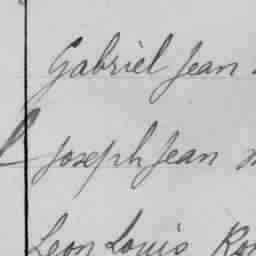 Gabriel Jean
Joseph Jean
Leon Louis